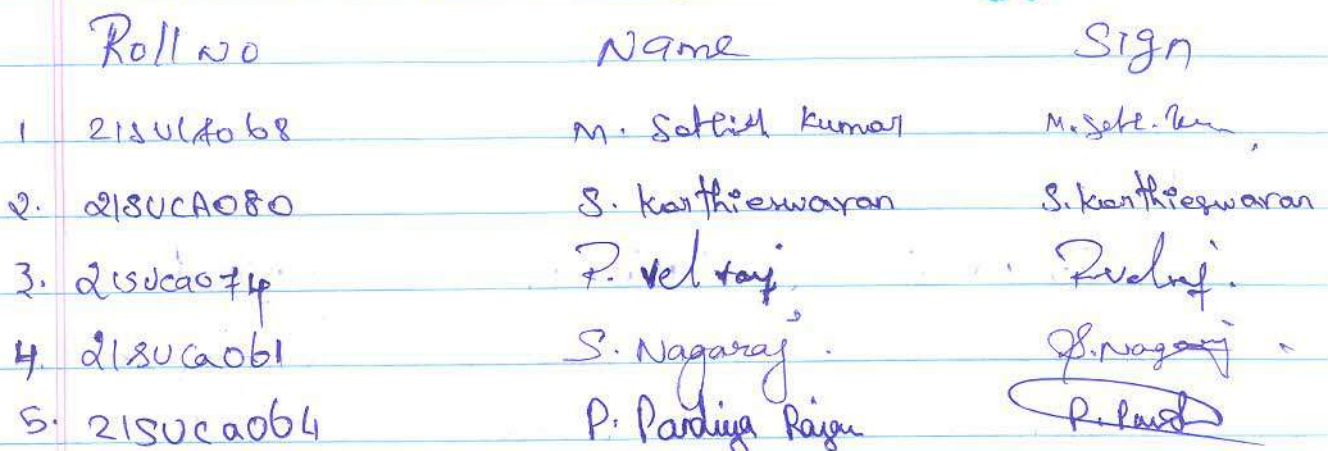 Roll no Name Sign
1 21SUCA068 M. Sathish Kumar M. Sath. Kum
2. 21SUCA080 S. Karthieswaran S. Karthieswaran
3. 21SUCa074 P. Vel raj P. Velraj.
4. 21SUCa061 S. Nagaraj. S. Nagaraj
5. 21SUCa064 P. Pandiya Rajan P. Pand